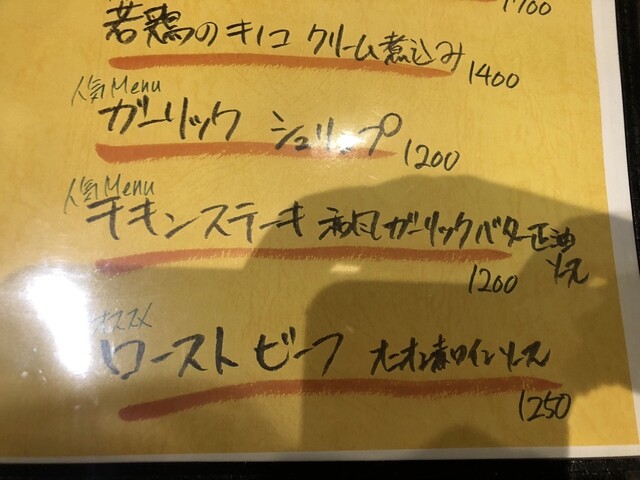 1700
若鶏のキノコ クリーム煮込み
1400
人気Menu
ガーリック シュリンプ
1200
人気Menu
チキンステーキ 和風ガーリックバター正油
ソース
1200
オススメ
ローストビーフ オニオン赤ワインソース
1250